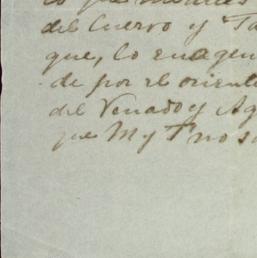 del Cuervo y Ta
que, lo enagen
de por el oriente
del Venado y Ag
que M y T no s